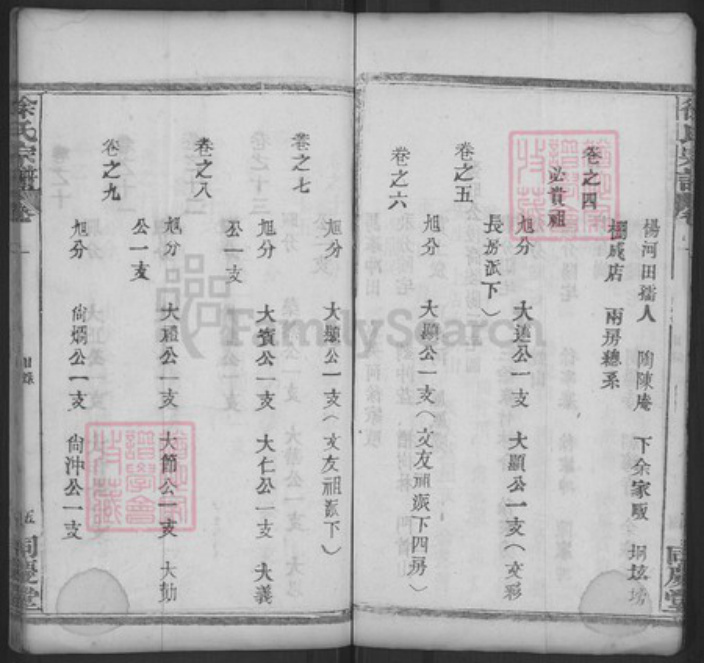 楊河田孺人 陶陳庵 下余家畈 垌垓塝
櫃成店 兩房總系
卷之四
必貴祖
旭分 大連公一支 大顯公一支（文彩
長房派下）
卷之五
旭分 大顯公一支（文友祖派下四房）
卷之六
旭分 大顯公一支（文友祖派下）
卷之七
旭分 大賓公一支 大仁公一支 大義
公一支
卷之八
旭分 大禮公一支 大節公一支 大勛
公一支
卷之九
旭分 尙爛公一支 尙沖公一支
徐氏宗譜 卷一
五
同慶堂
徐氏宗譜 卷
同慶堂
FamilySearch